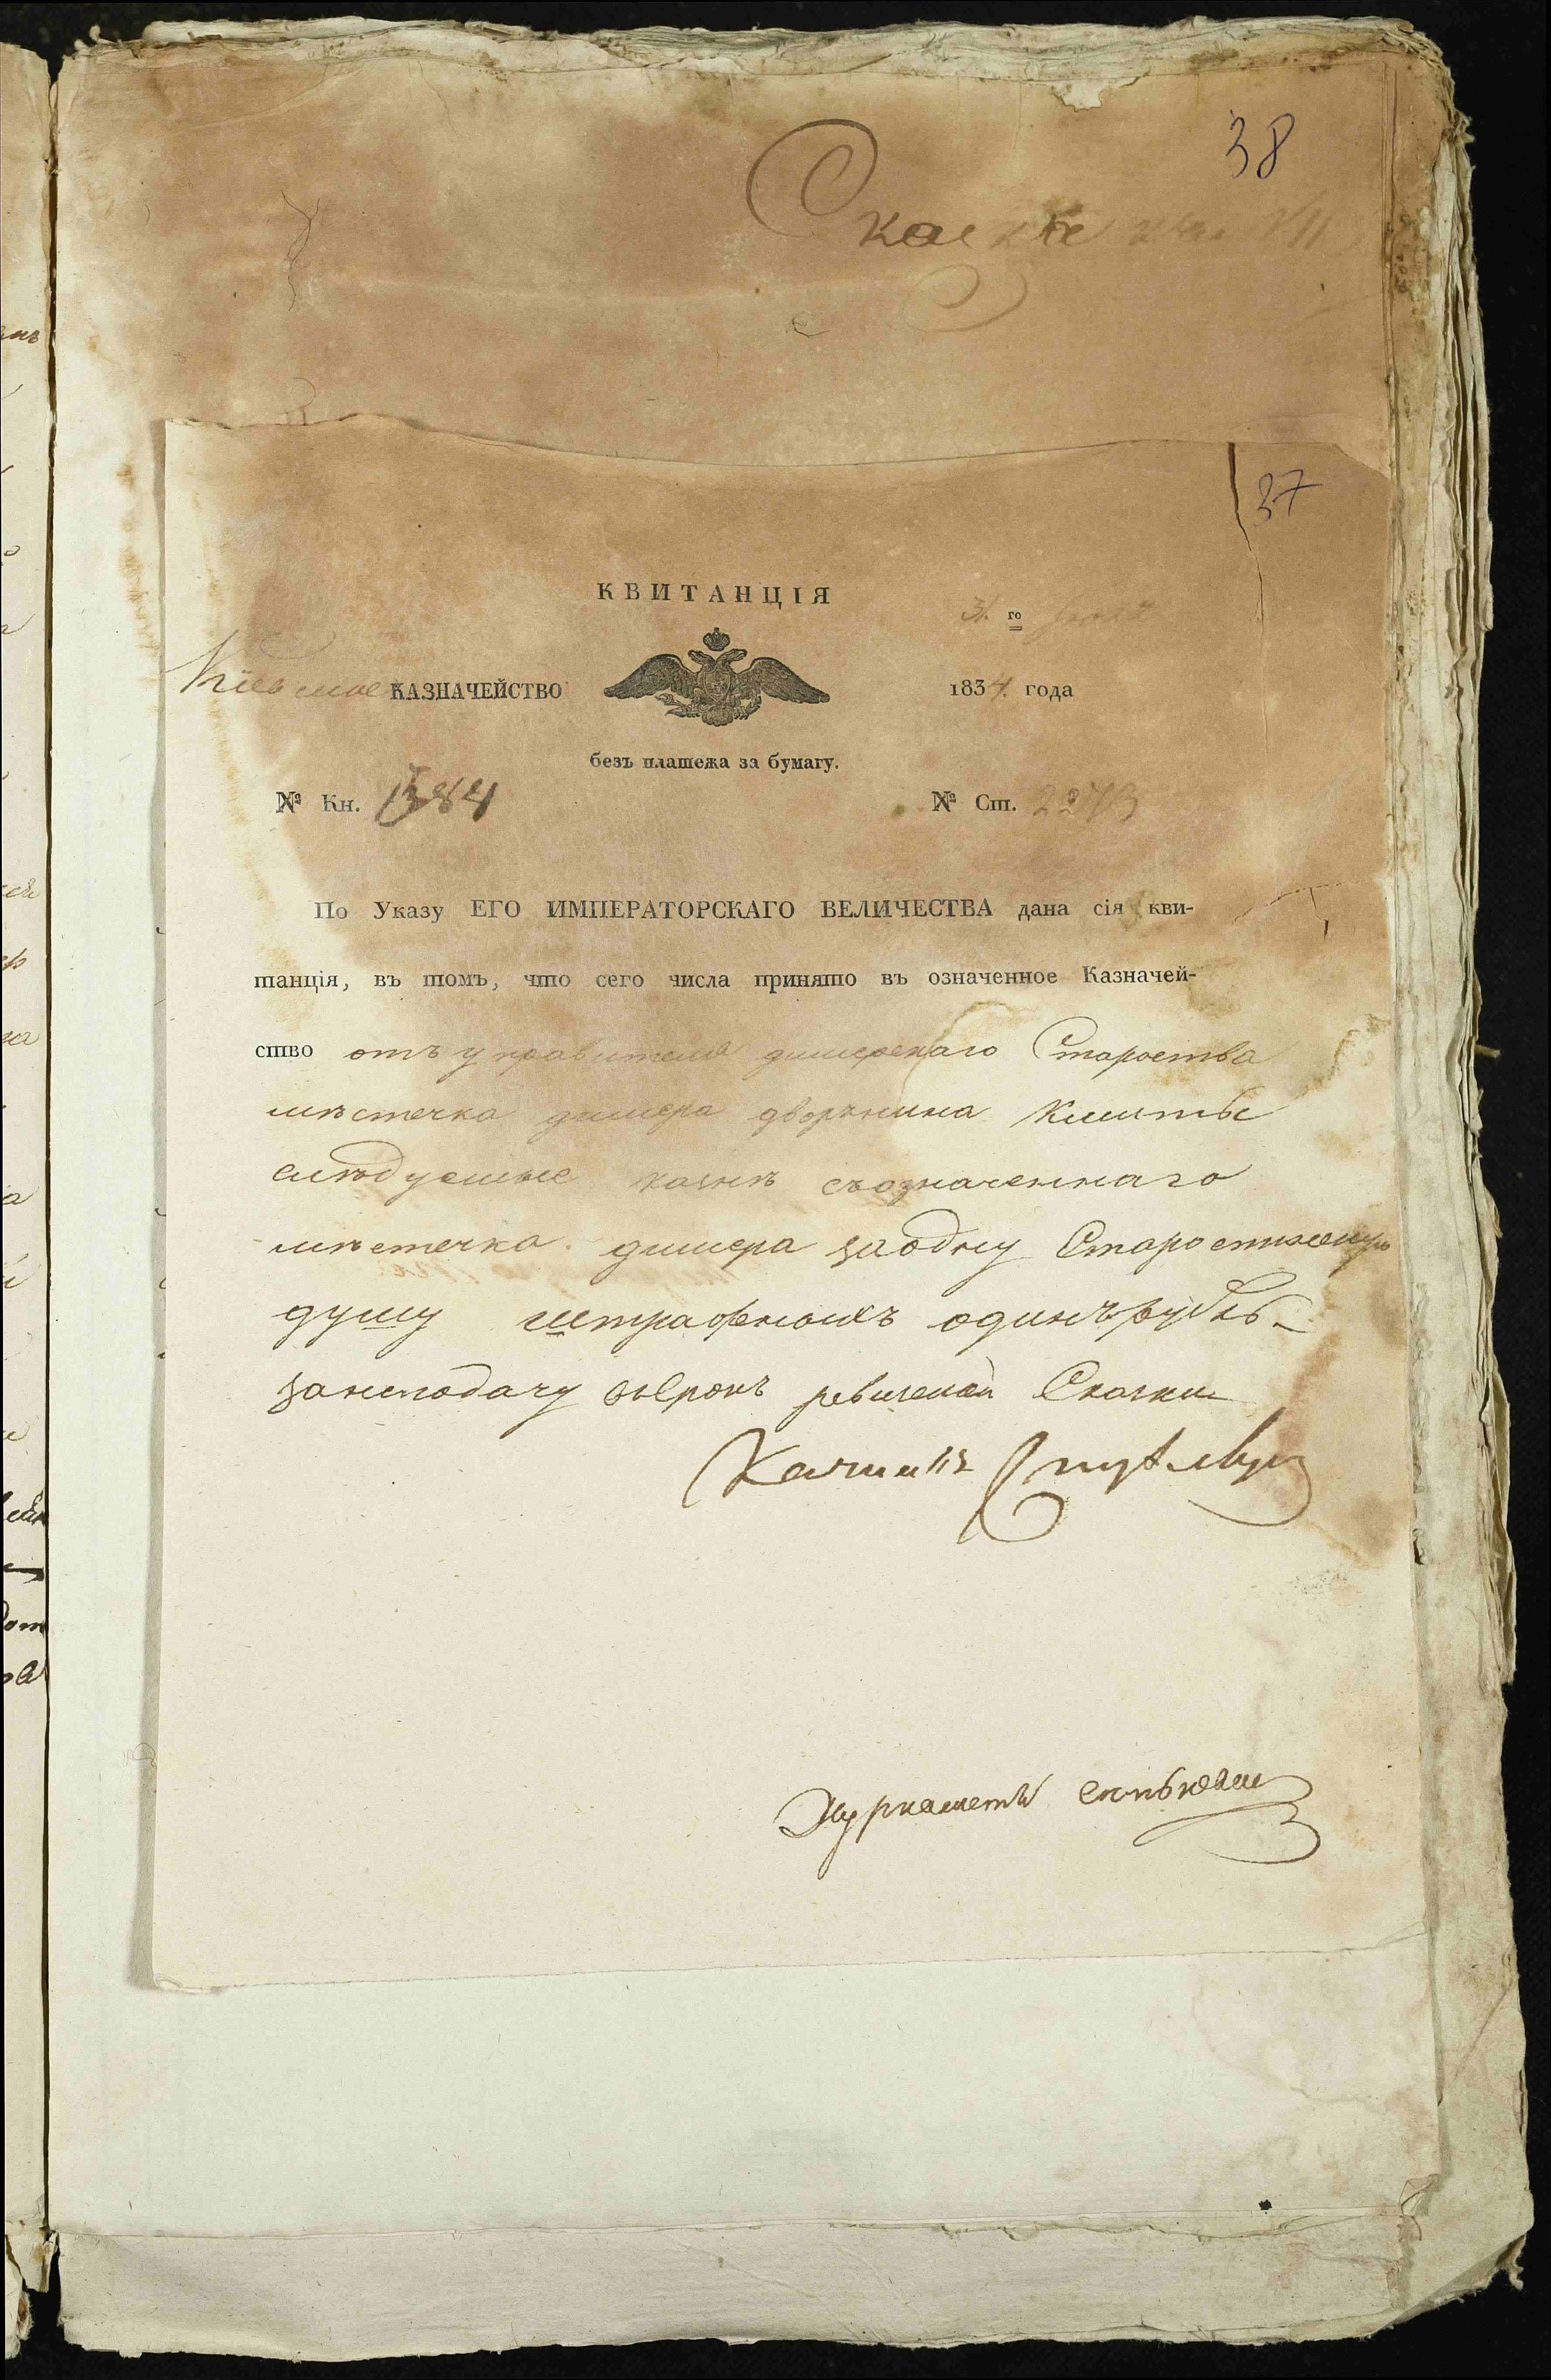 38
Скаска
37
КВИТАНЦІЯ
31. го Іюля
Кіевское КАЗНАЧЕЙСТВО
1834. года
безъ платежа за бумагу.
№ Кн. 1384
№ Ст. 2273
По Указу ЕГО ИМПЕРАТОРСКАГО ВЕЛИЧЕСТВА дана сія кви-
танція, въ томъ, что сего числа принято въ означенное Казначей-
ство отъ управителя дымерскаго Староства
мѣстечка дымера дворянина
слѣдуемые казнѣ съозначеннаго
мѣстечка дымера заодну Старостинскую
душу штрафныхъ одинъ рубль
занеподачу въсрокъ ревизской Сказки